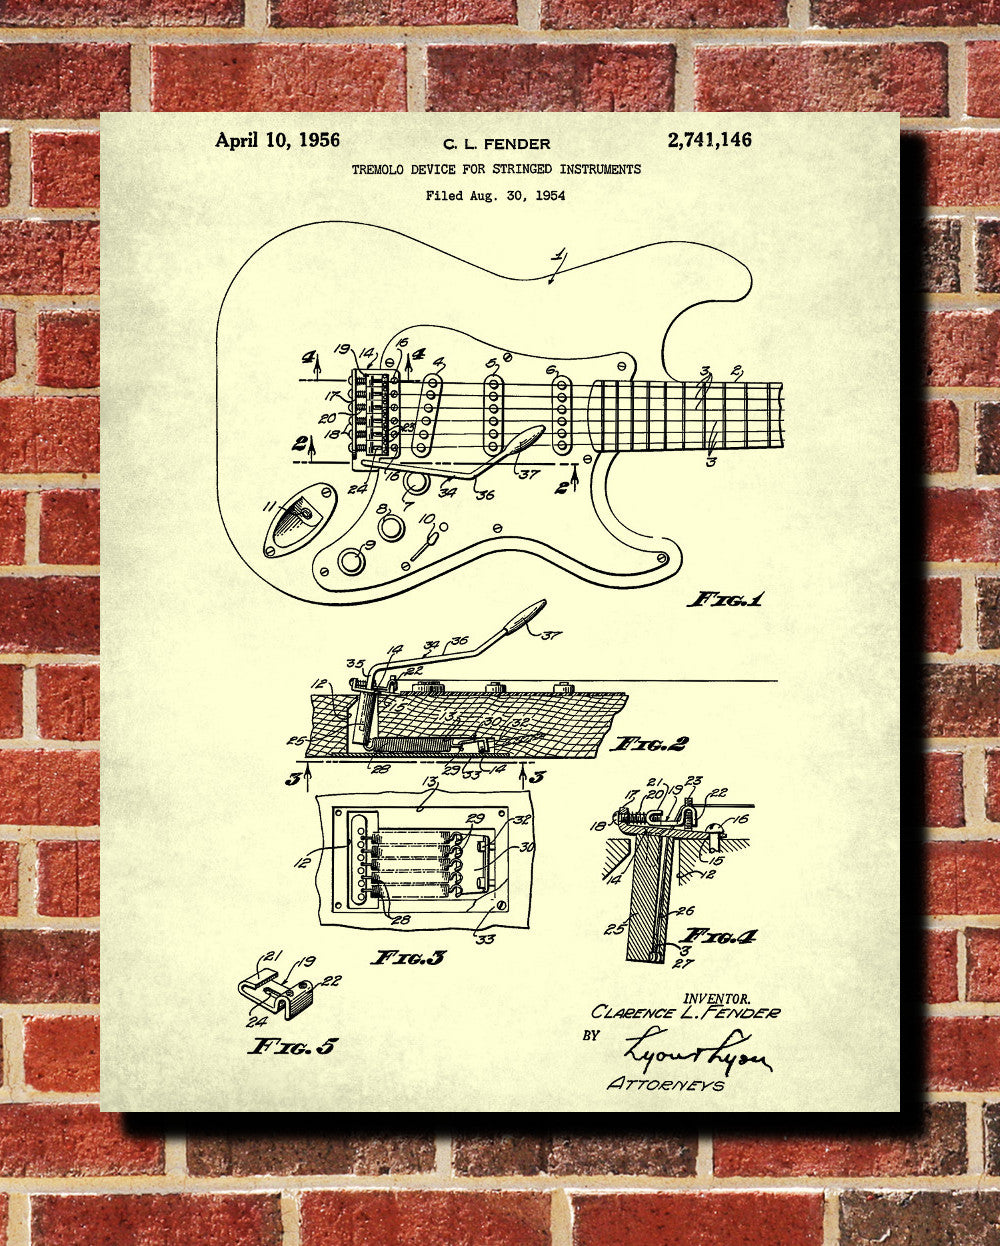 April 10, 1956 C. L. FENDER 2,741,146
TREMOLO DEVICE FOR STRINGED INSTRUMENTS
Filed Aug. 30, 1954
1
4 19 14 15 4 4 5 6 3 2
17
20
18 23
2
24 16 34 36 37 2 3
11 7
8 10
9
FIG.1
37
34 36
35 14 22
12 15 13 30 32
25
28 29 33 14
FIG.2
3 3
13
29 32
12 30
28
33
FIG.3
21 23
17 20 19 22
18 16
15
14 12
26
25
FIG.4
3
27
21 19
22
24
FIG. 5
INVENTOR.
CLARENCE L. FENDER
BY Lyon & Lyon
ATTORNEYS